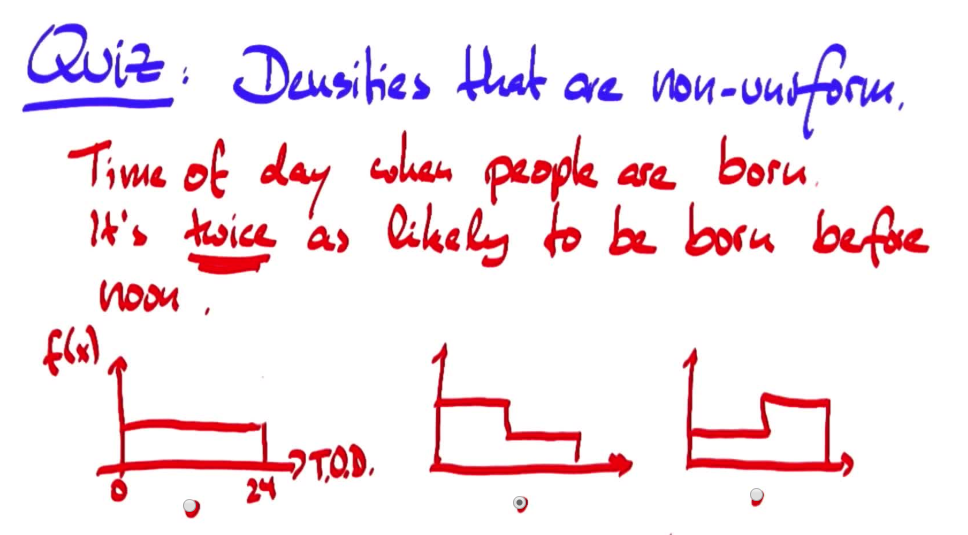 Quiz: Densities that are non-uniform.
Time of day when people are born.
It's twice as likely to be born before
noon.
f(x)
T.O.D.
0 24